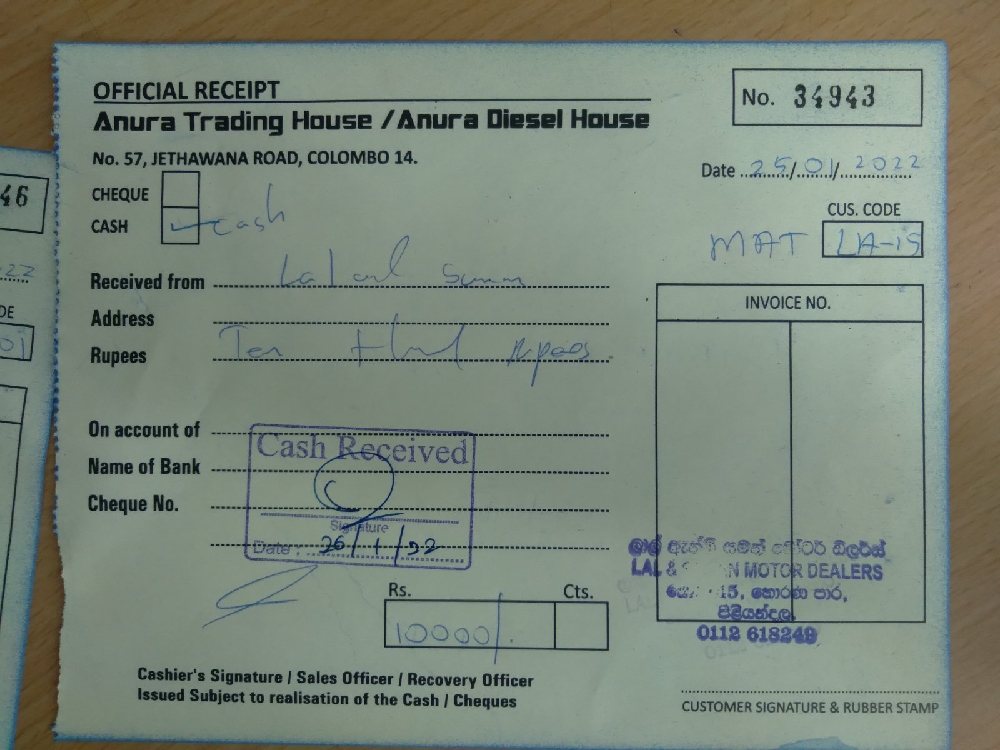 OFFICIAL RECEIPT
Anura Trading House / Anura Diesel House
No. 57, JETHAWANA ROAD, COLOMBO 14.
No. 34943
Date 25/01/2022
CHEQUE
CASH cash
CUS. CODE
MAT LA-15
Received from Lal and
Address
Rupees Ten rupees
INVOICE NO.
On account of
Name of Bank
Cheque No.
Cash Received
Signature
Date: 26/1/22
Rs. Cts.
10000/.
ලාල් ඇන්ඩ් මෝටර් ඩීලර්ස්
LAL & MOTOR DEALERS
15, හොරණ පාර,
පිළියන්දල.
0112 618249
Cashier's Signature / Sales Officer / Recovery Officer
Issued Subject to realisation of the Cash / Cheques
CUSTOMER SIGNATURE & RUBBER STAMP
46
22
DE
01